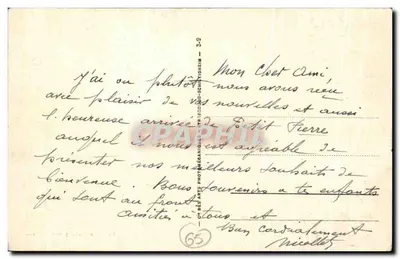 Mon Cher Ami,
J'ai ou plutôt nous avons reçu
avec plaisir de vos nouvelles et aussi
l'heureuse arrivée de Petit Pierre
auquel il nous est agréable de
présenter nos meilleurs souhaits de
bienvenue. Bons souvenirs à te enfants
qui sont au front
amitiés à tous et
Bien cordialement
Nicollet
65
3-9
CPARAMA